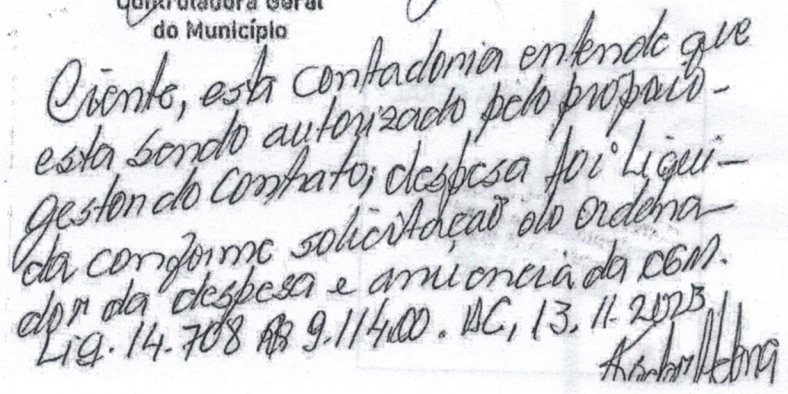 Controladora Geral
do Município
Ciente, esta contadoria entende que
esta sendo autorizado pelo proprio
gestor do contrato; despesa foi liqui-
da conforme solicitação do ordena-
dor da despesa e anuencia da CGM.
Liq. 14.708 R$ 9.114,00. AC, 13.11.2023